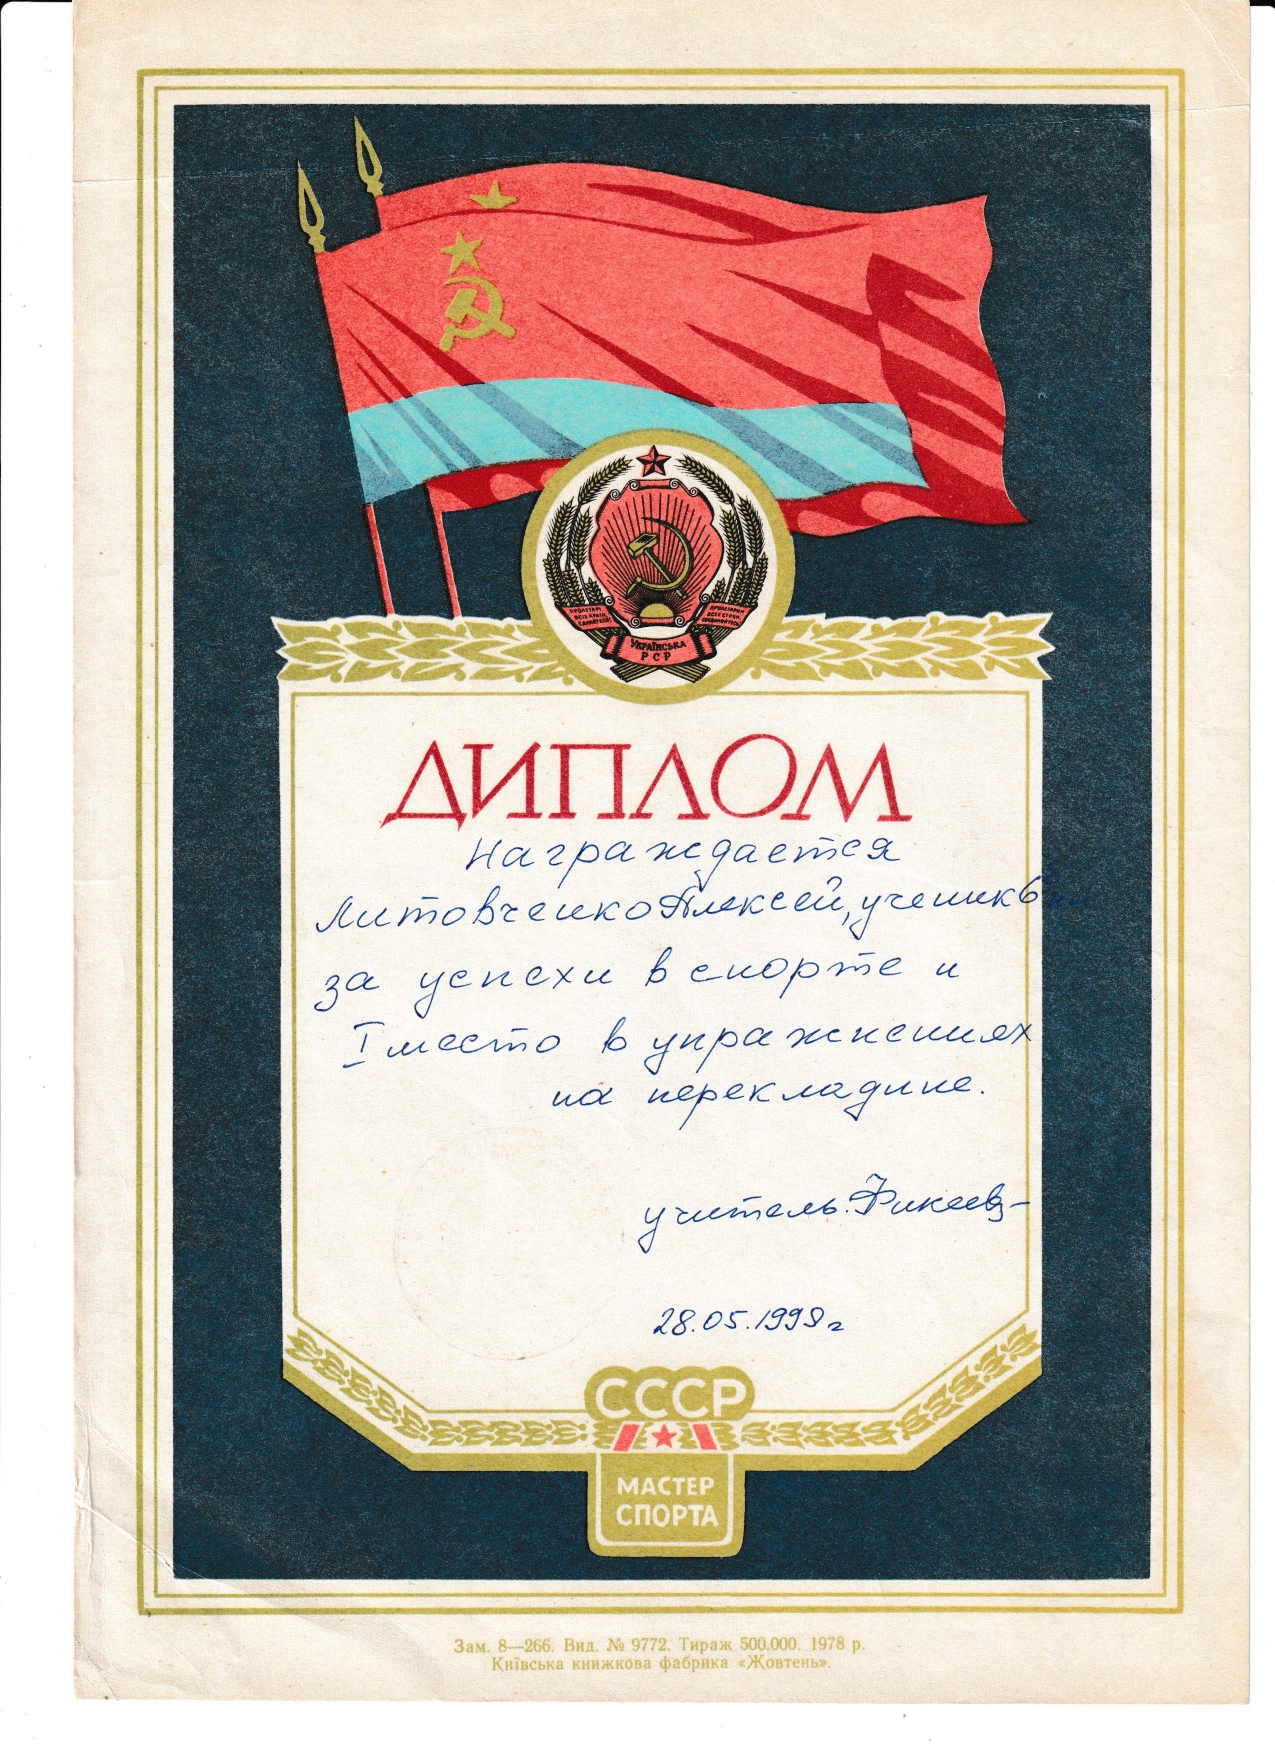 ПРОЛЕТАРІ
ВСІХ КРАЇН,
ЄДНАЙТЕСЯ!
ПРОЛЕТАРИИ
ВСЕХ СТРАН,
СОЕДИНЯЙТЕСЬ!
УКРАЇНСЬКА
РСР
ДИПЛОМ
Награждается
Литовченко Алексей, ученик 6 кл
за успехи в спорте и
I место в упражнениях
на перекладине.
учитель.
28.05.1998г
СССР
МАСТЕР
СПОРТА
Зам. 8—266. Вид. № 9772. Тираж 500.000. 1978 р.
Київська книжкова фабрика «Жовтень».